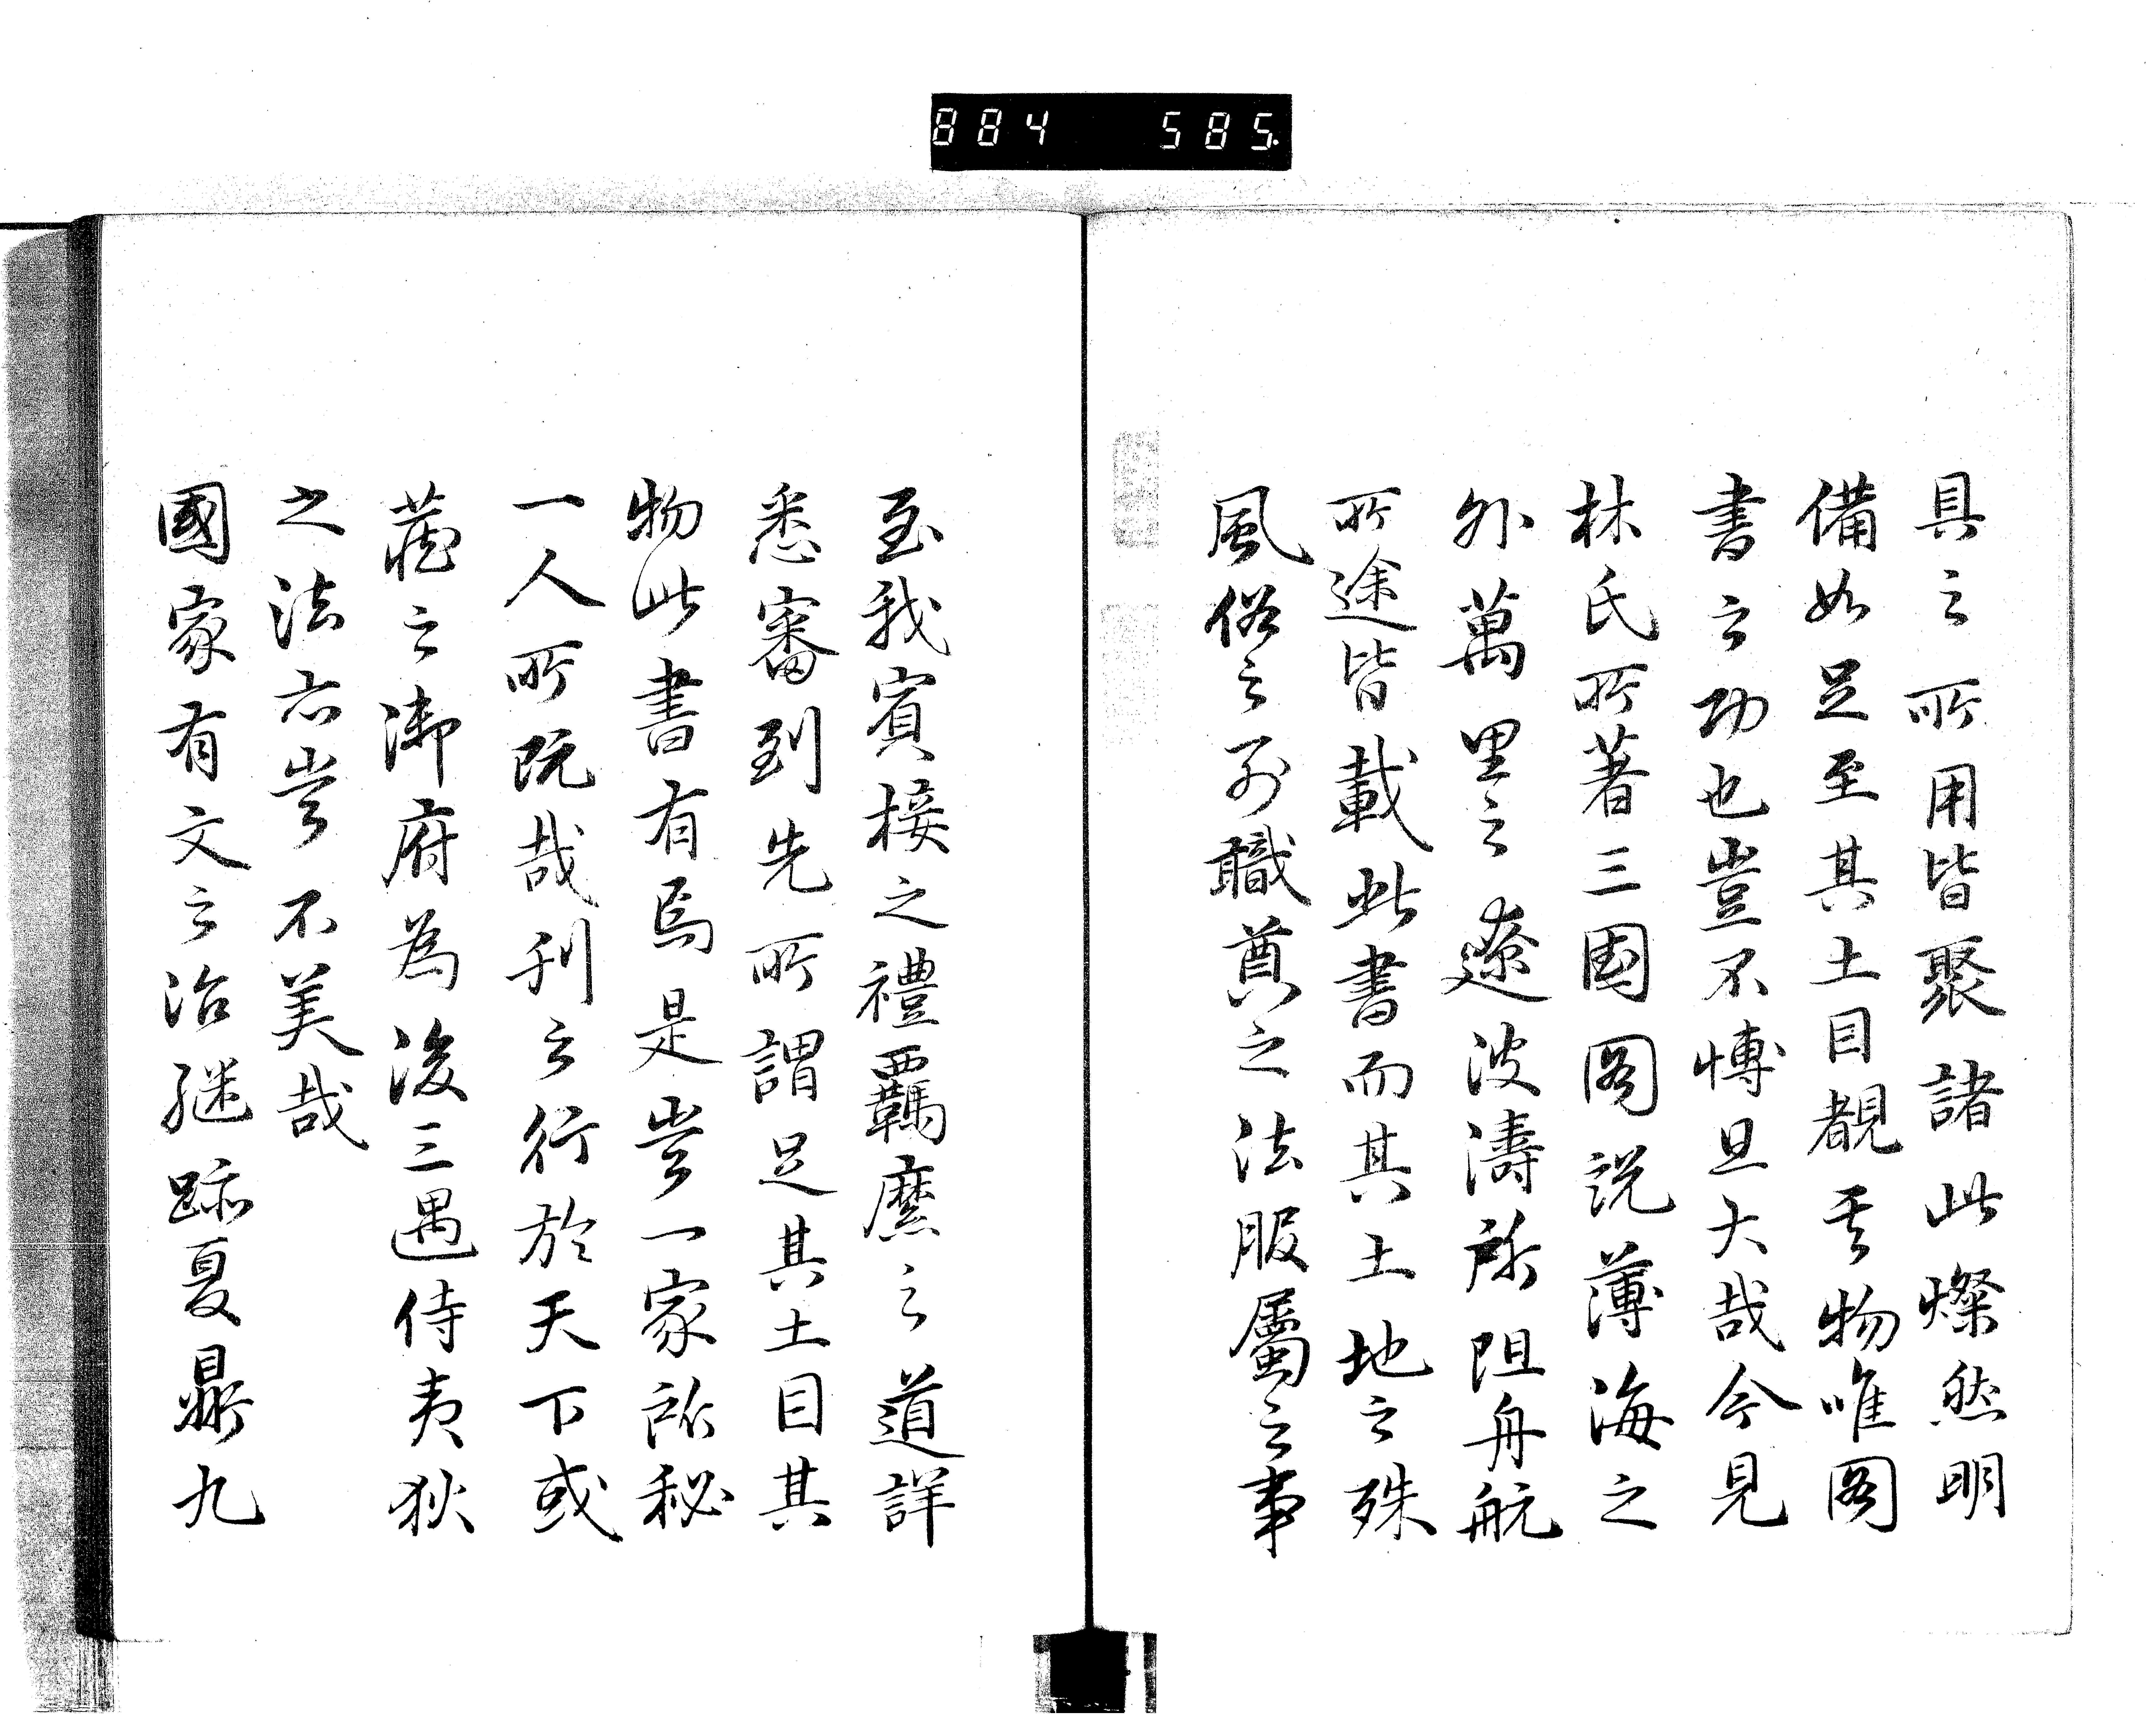 884 585.
具之所用皆聚諸此燦然明
備如足至其土目覩其物唯圖
書之功也豈不博且大哉今見
林氏所著三國圖説薄海之
外萬里之遼波濤所阻舟航
所途皆載此書而其土地之殊
風俗之別職貢之法服屬之事
至我賓接之禮羈縻之道詳
悉審到先所謂足其土目其
物此書有焉是豈一家所秘
一人所玩哉刊之行於天下或
蔵之御府為後三遇侍夷狄
之法亦豈不美哉
國家有文之治継跡夏鼎九